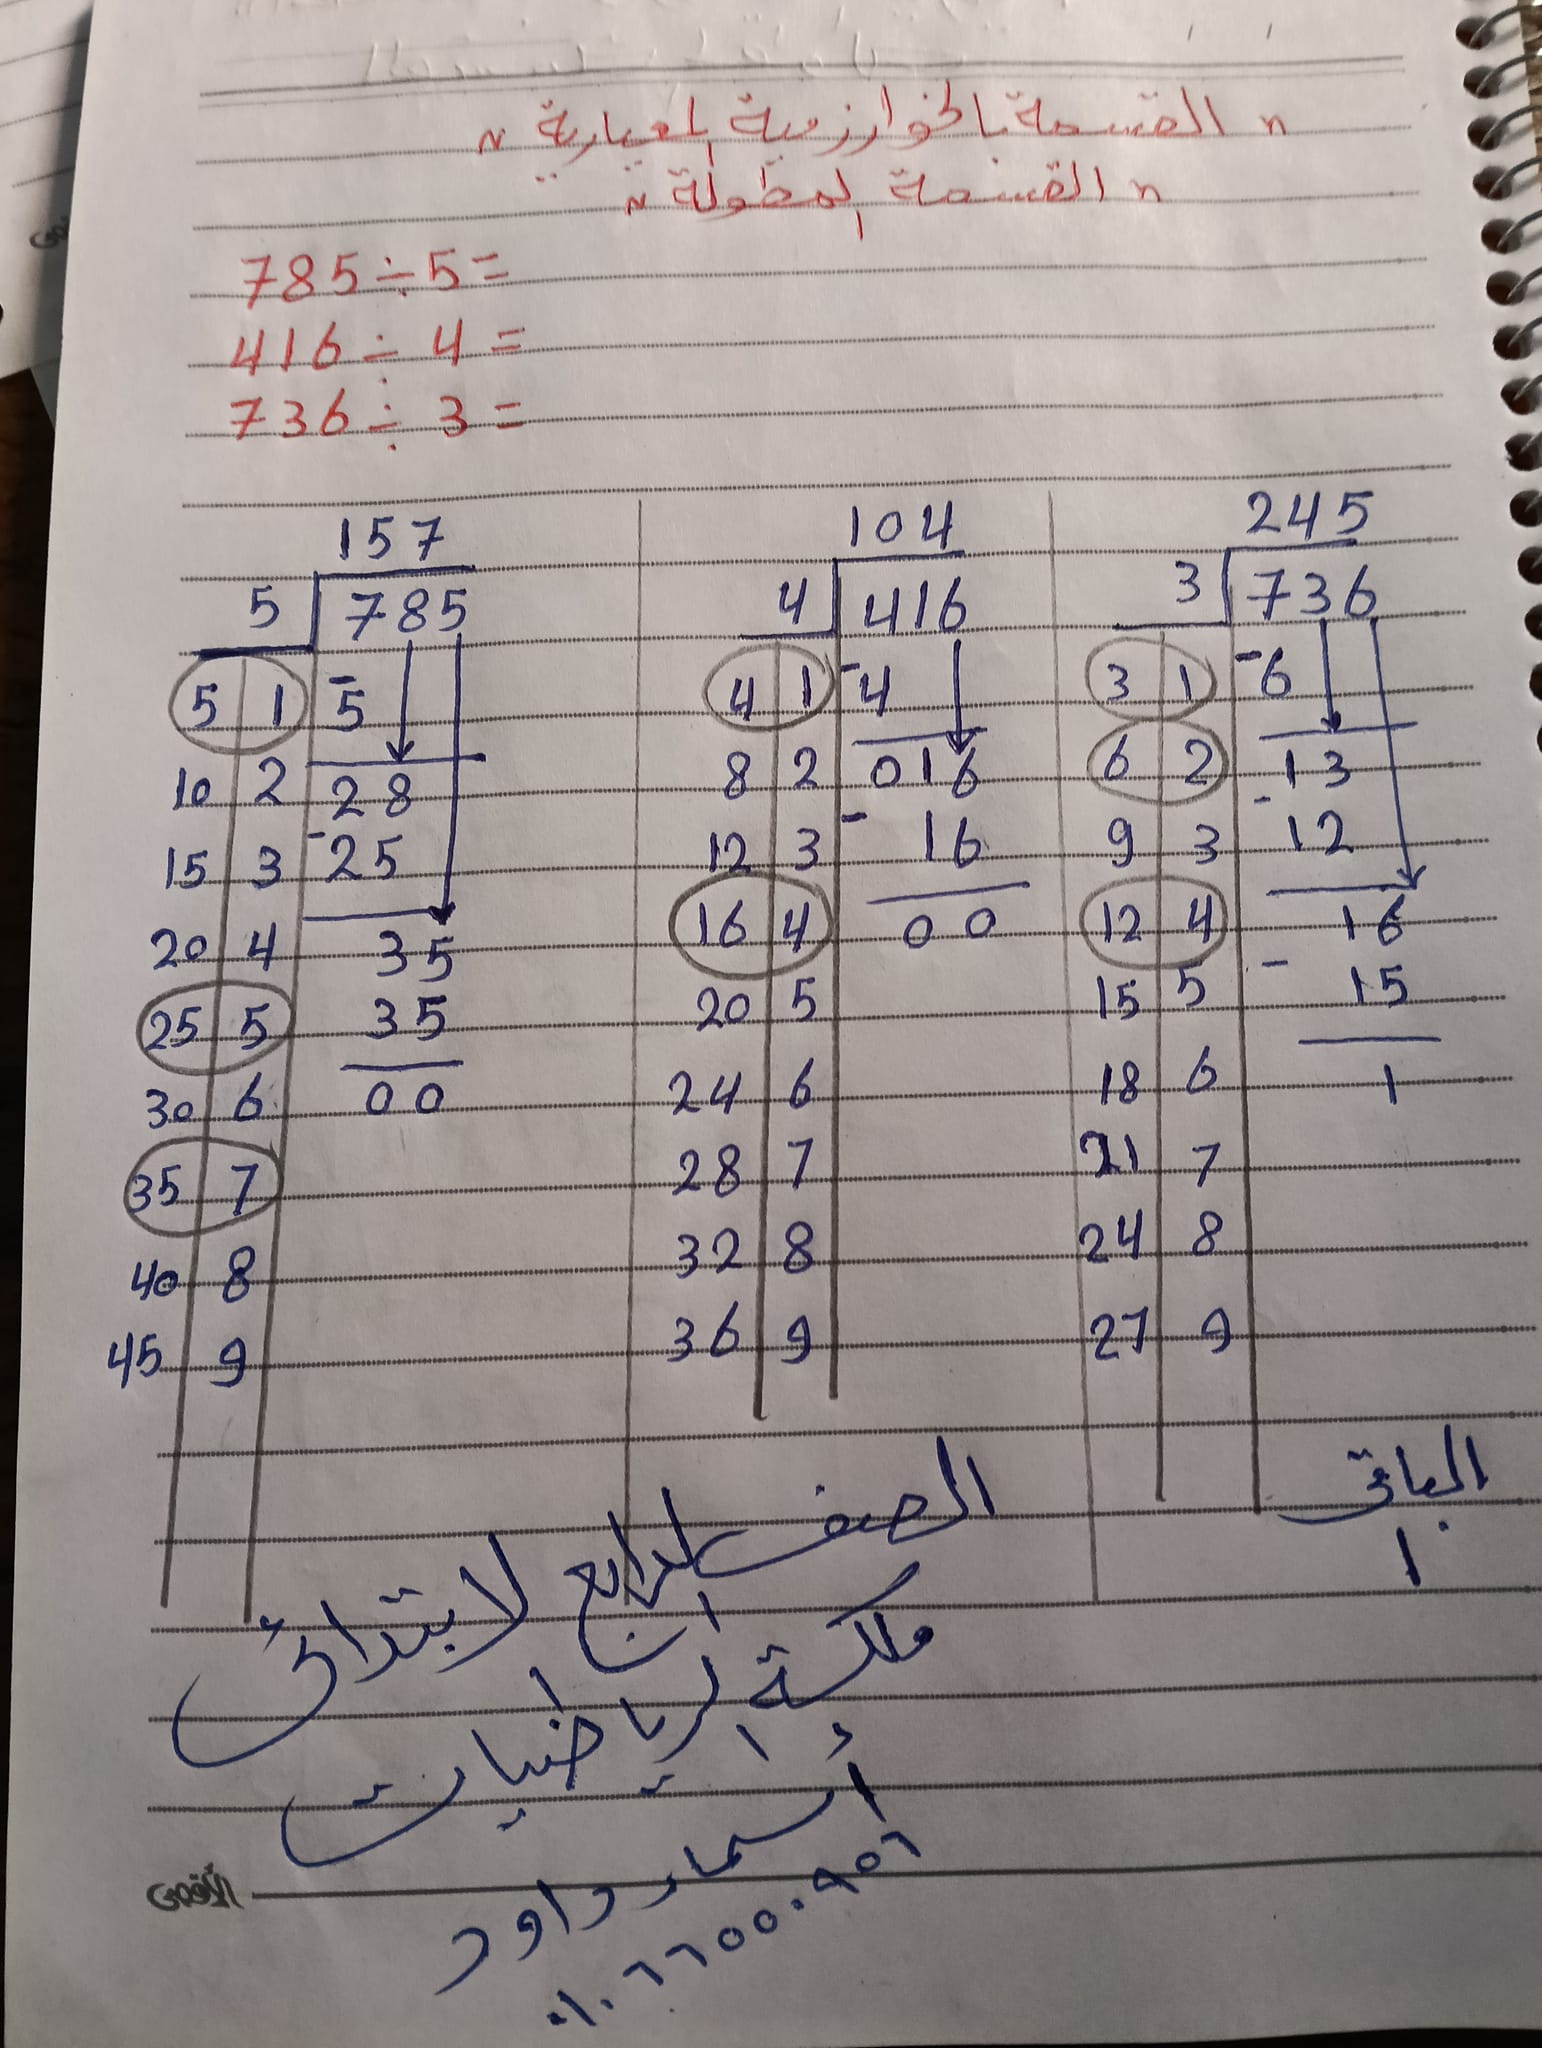 " القسمة بالخوارزمية المعيارية "
" القسمة المطولة "
785 ÷ 5 =
416 ÷ 4 =
736 ÷ 3 =
157
5 785
5 1 - 5
10 2 28
15 3 - 25
20 4 35
25 5 35
30 6 00
35 7
40 8
45 9
104
4 416
4 1 - 4
8 2 016
12 3 - 16
16 4 00
20 5
24 6
28 7
32 8
36 9
245
3 736
3 1 - 6
6 2 13
9 3 - 12
12 4 16
15 5 - 15
18 6 1
21 7
24 8
27 9
الباقى
1
الصف الرابع الابتدائى
ملكة الرياضيات
أسماء داود
٠١٠٦٦٥٥٠٩٥٦
الأقصى